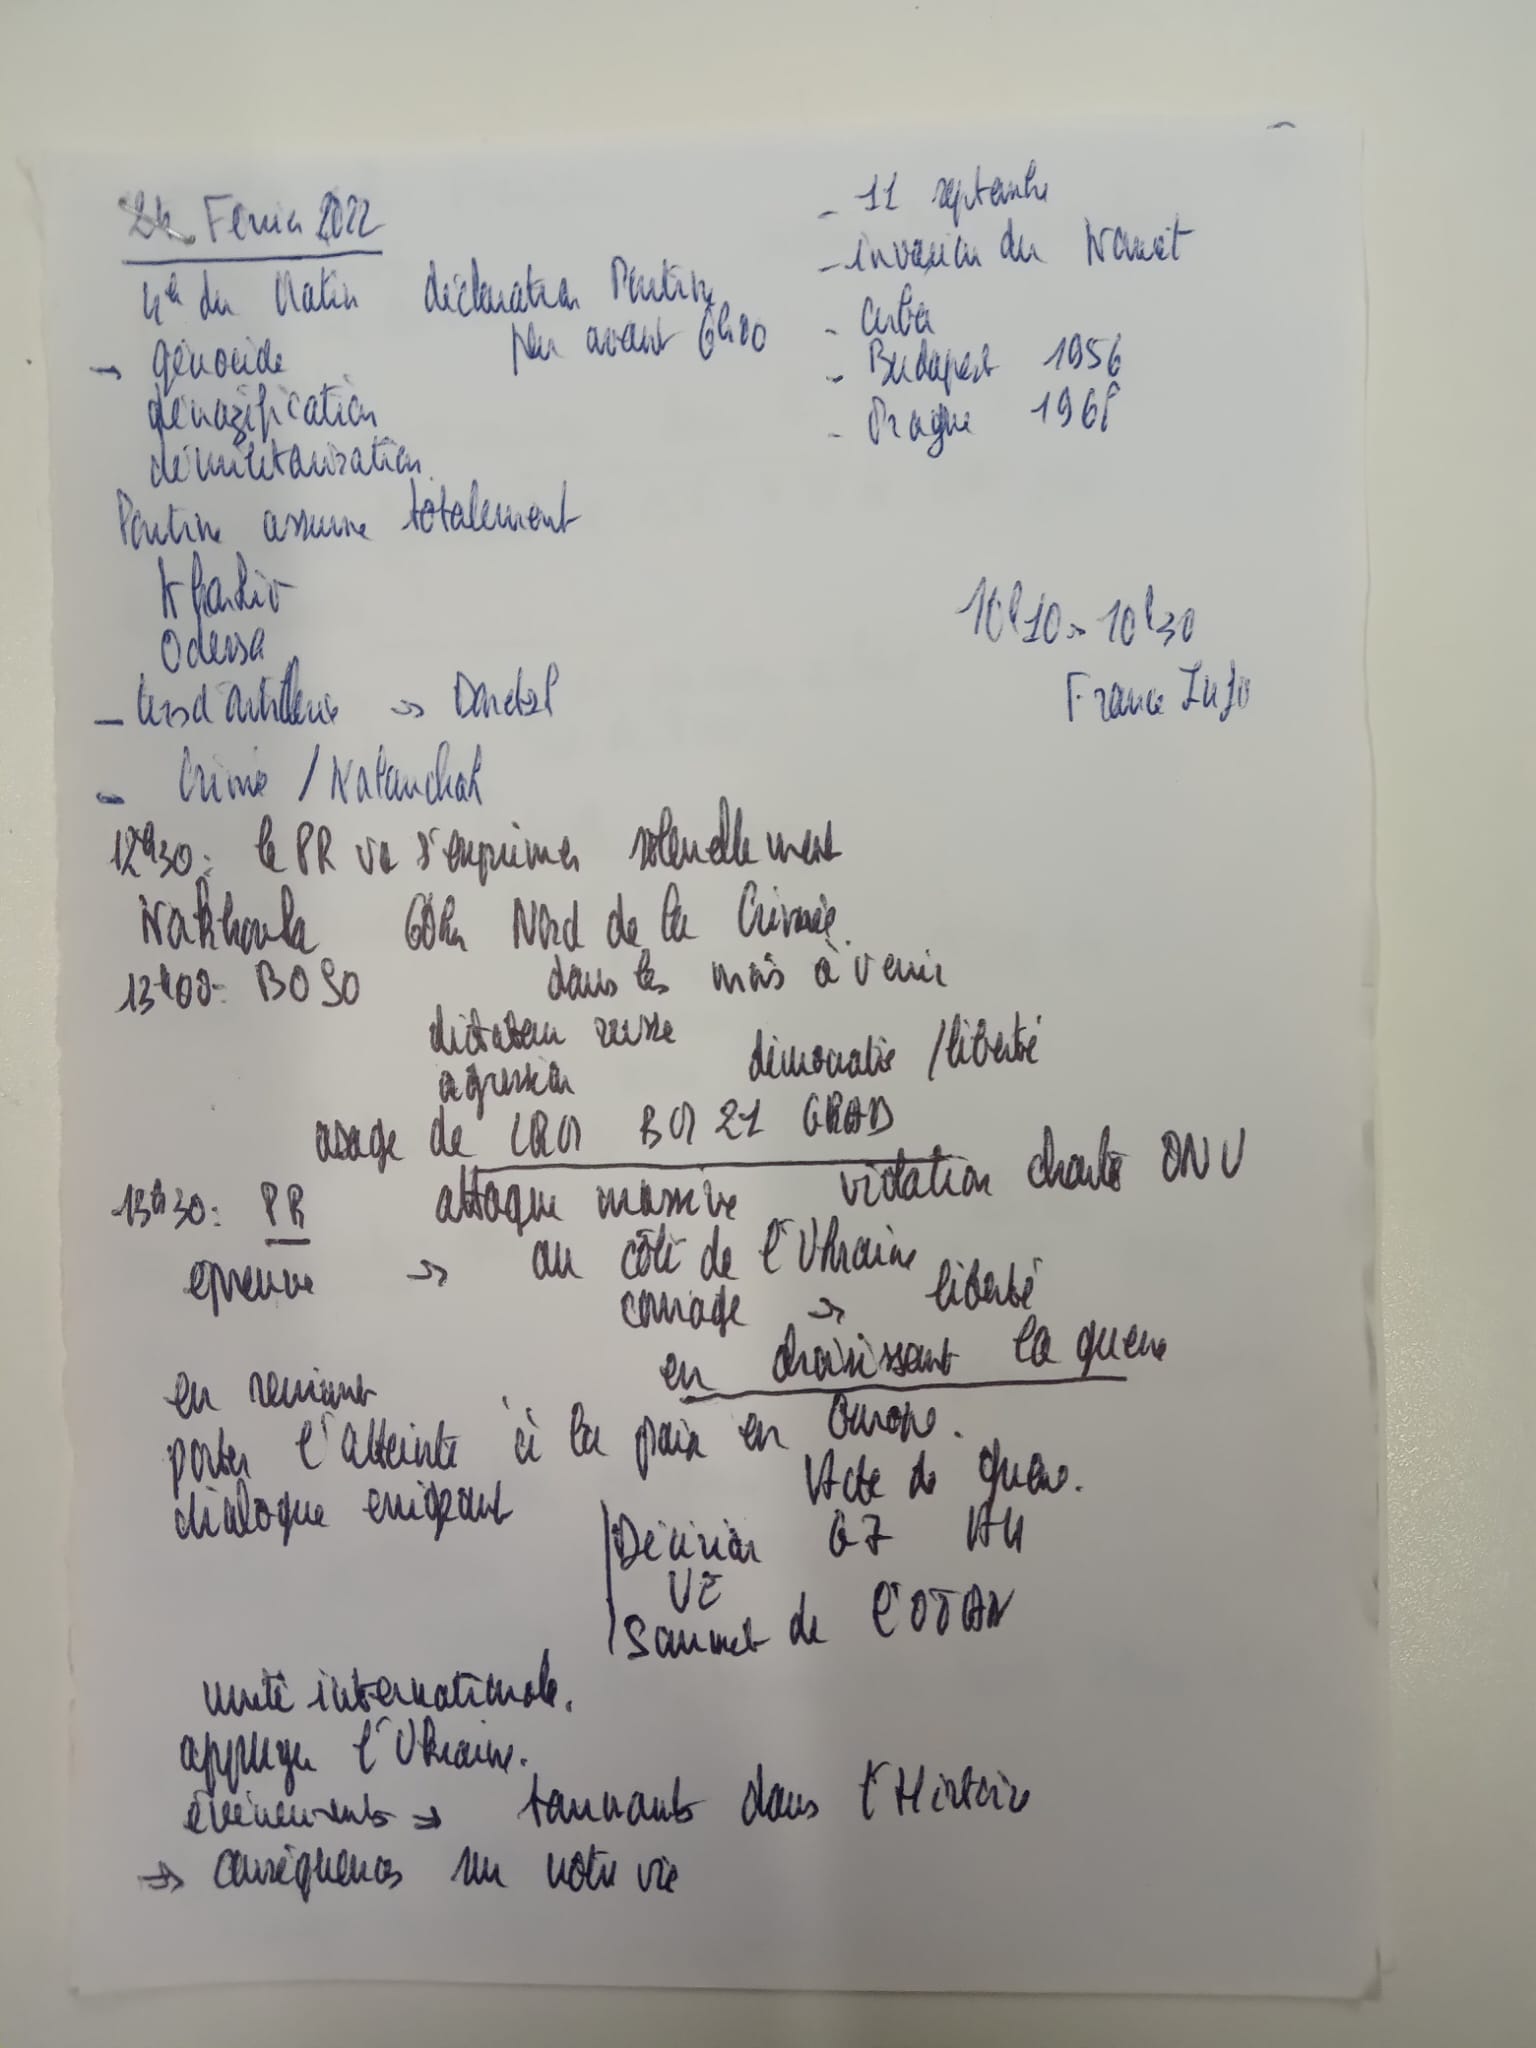 24 Février 2022
4h du Matin déclaration Poutine
peu avant 6h00
→ génocide
dénazification
démilitarisation
Poutine assume totalement
Kharkiv
Odessa
- 11 septembre
- invasion du Koweit
- Cuba
- Budapest 1956
- Prague 1968
10h10 → 10h30
France Info
- tirs d'artillerie →
- Crimée /
12h30: le PR va s'exprimer solennellement
60km Nord de la Crimée
13h00: BOJO dans les mois à venir
dictateur russe
agression démocratie / liberté
usage de LRM BM 21 GRAD
13h30: PR attaque massive violation charte ONU
épreuve → au côté de l'Ukraine
courage → liberté
en choisissant la guerre
en reniant
porter l'atteinte à la paix en Europe.
Acte de guerre.
dialogue exigeant
Décision G7 AM
UE
Sommet de l'OTAN
unité internationale.
appuyer l'Ukraine.
évènements → tournants dans l'Histoire
→ conséquences sur notre vie